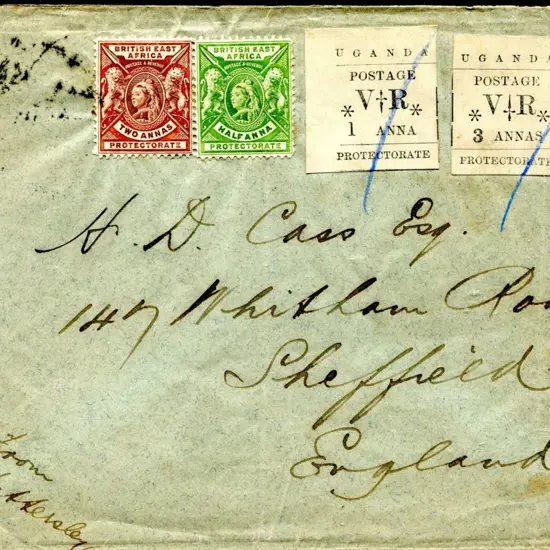 BRITISH EAST
AFRICA
POSTAGE & REVENUE
TWO ANNAS
PROTECTORATE
BRITISH EAST
AFRICA
POSTAGE & REVENUE
HALF ANNA
PROTECTORATE
UGANDA
POSTAGE
* V†R *
1 ANNA
PROTECTORATE
UGANDA
POSTAGE
* V†R *
3 ANNAS
PROTECTORATE
H. D. Cass Esq.
147 Whitham
Sheffield
England
From